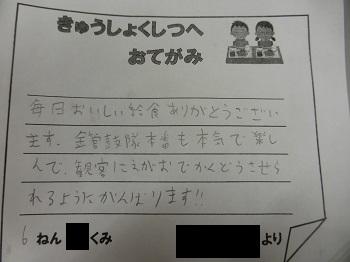 きゅうしょくしつへ
おてがみ
毎日おいしい給食ありがとうござい
ます。金管鼓隊本番も本気で楽し
んで、観客にえがおでかくどうさせら
れるようにがんばります!!
6 ねん くみ より